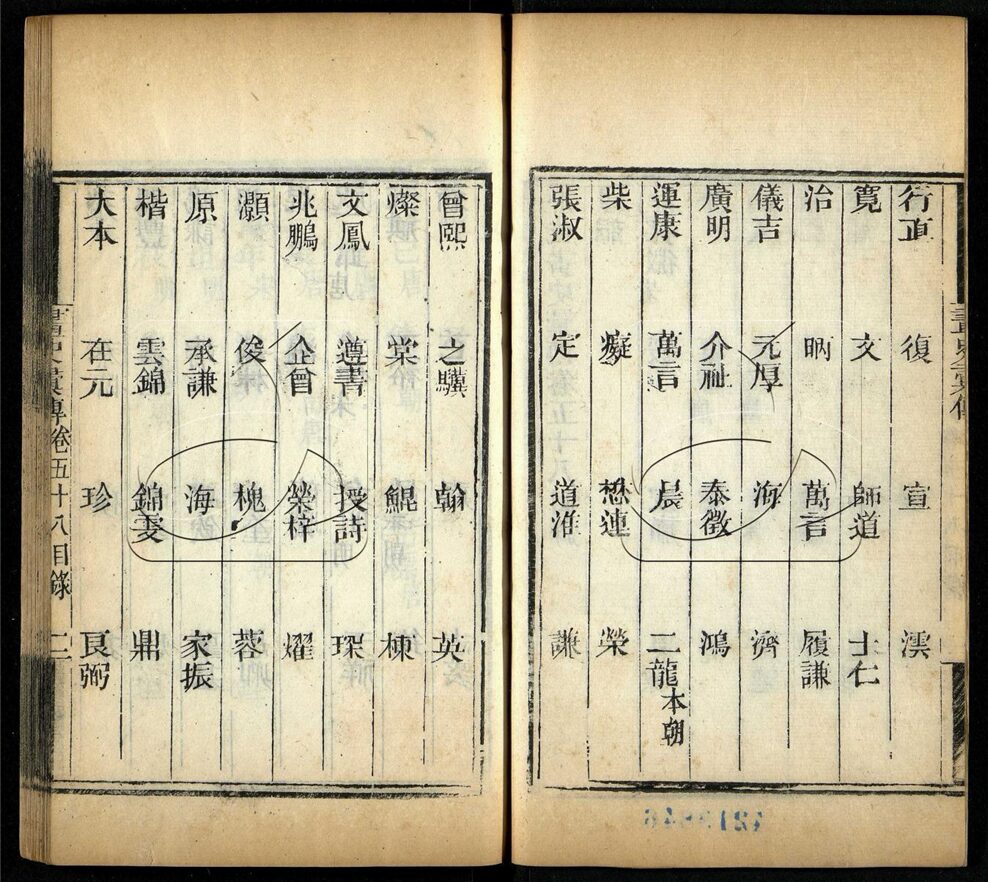 畫史彙傳
行直 復 宣
寬 文 師道 士仁
治 昞 萬言 履謙
儀吉 元厚 海 濟
廣明 介祉 泰徵 鴻
運康 萬言 晨 二龍 本朝
柴 癡 懋連 榮
張淑 定 道淮 謙
曾熙 之驥 翰 英
燦 棠 鯤 棟
文鳳 遵書 授詩 琛
兆鵬 企曾 榮梓 燿
灝 俊 槐 蓉
原 承謙 海 家振
楷 雲錦 錦雯 鼎
大本 在元 珍 良弼
畫史彙傳卷五十八目錄 二